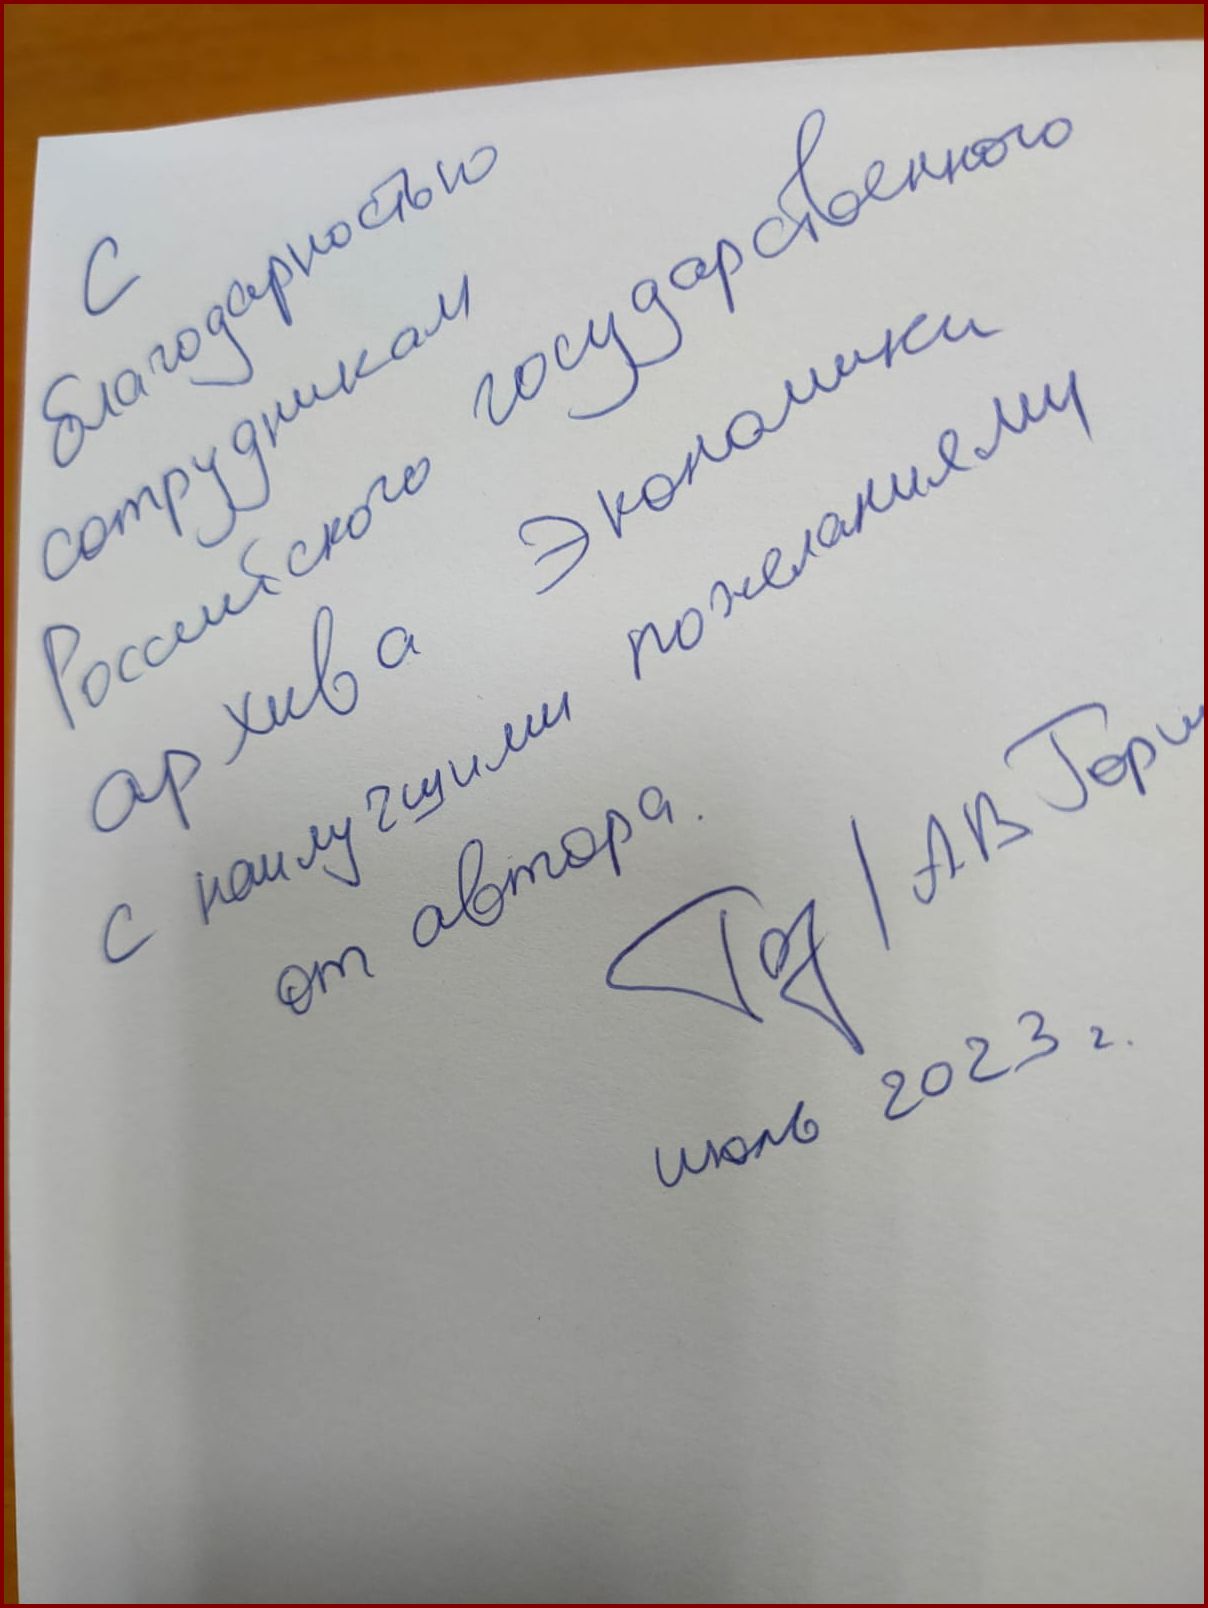 С
благодарностью
сотрудникам
Российского государственного
архива экономики
с наилучшими пожеланиями
от автора.
/ АВ
июль 2023 г.